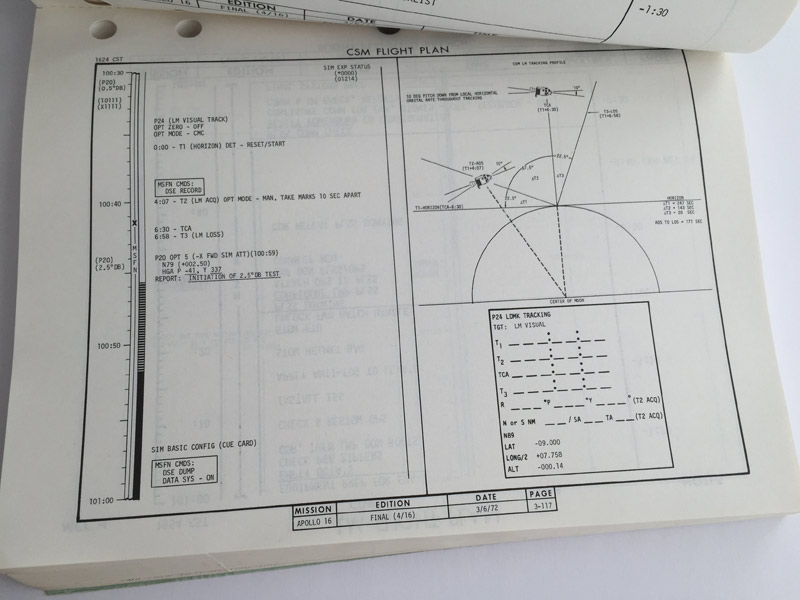 EDITION
APOLLO 16
FINAL (4/16)
DATE
-1:30
1624 CST
CSM FLIGHT PLAN
100:30
(P20)
(0.5°DB)
(IO111)
(X1111)
SIM EXP STATUS
(*0000)
(01214)
P24 (LM VISUAL TRACK)
OPT ZERO - OFF
OPT MODE - CMC
0:00 - T1 (HORIZON) DET - RESET/START
MSFN CMDS:
DSE RECORD
4:07 - T2 (LM ACQ) OPT MODE - MAN, TAKE MARKS 10 SEC APART
100:40
6:30 - TCA
6:58 - T3 (LM LOSS)
M
S
F
N
(P20)
(2.5°DB)
P20 OPT 5 (-X FWD SIM ATT)(100:59)
N79 (+002.50)
HGA P -41, Y 337
REPORT: INITIATION OF 2.5°DB TEST
100:50
SIM BASIC CONFIG (CUE CARD)
MSFN CMDS:
DSE DUMP
DATA SYS - ON
101:00
CSM LM TRACKING PROFILE
10 DEG PITCH DOWN FROM LOCAL HORIZONTAL
ORBITAL RATE THROUGHOUT TRACKING
10°
TCA
(T1+6:30)
T3-LOS
(T1+6:58)
T2-AOS
(T1+4:07)
10°
22.5°
ΔT2
ΔT3
ΔT1
T1-HORIZON(TCA-6:30)
HORIZON
ΔT1 = 247 SEC
ΔT2 = 143 SEC
ΔT3 = 28 SEC
AOS TO LOS = 171 SEC
CENTER OF MOON
P24 LDMK TRACKING
TGT: LM VISUAL
T1
T2
TCA
T3
R °P °Y ° (T2 ACQ)
N or S NM / SA TA (T2 ACQ)
N89
LAT -09.000
LONG/2 +07.758
ALT -000.14
MISSION EDITION DATE PAGE
APOLLO 16 FINAL (4/16) 3/6/72 3-117